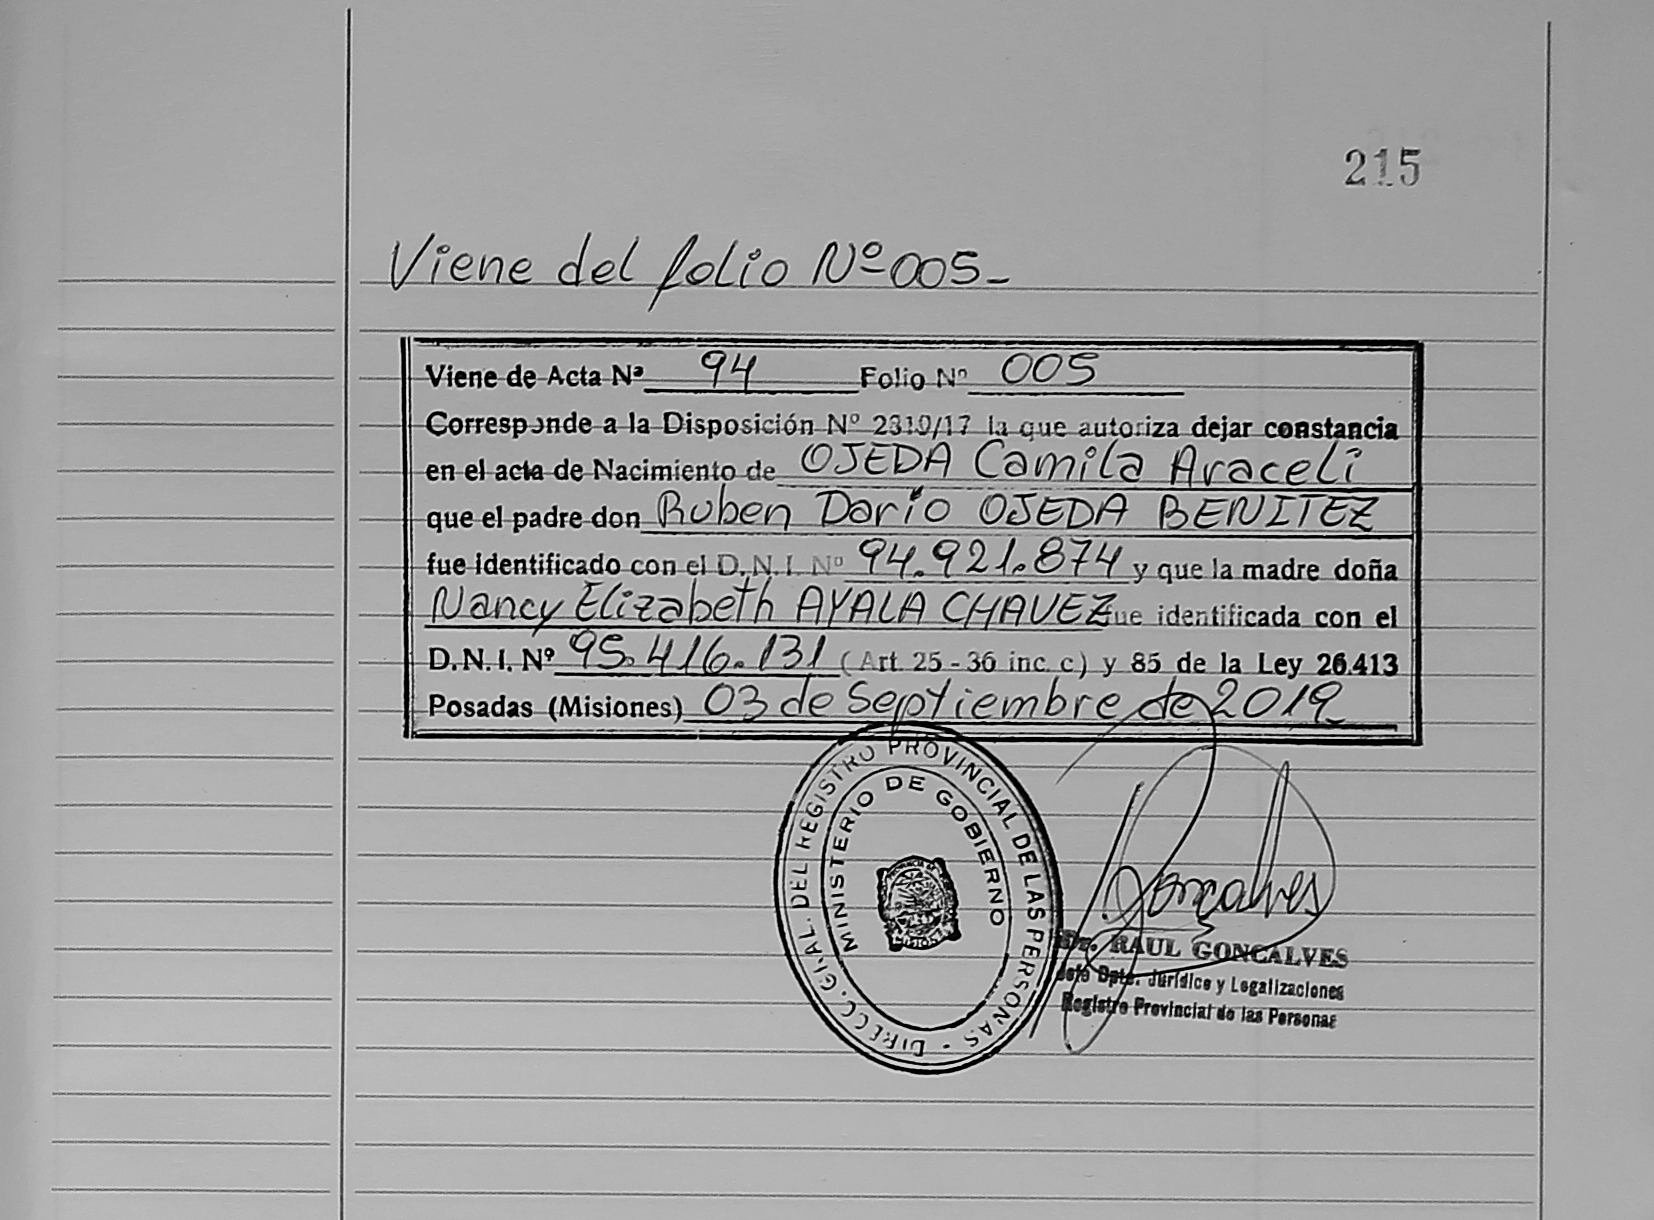 215
Viene del folio Nº 005-
Viene de Acta Nº 94 Folio Nº 005
Corresponde a la Disposición Nº 2310/17 la que autoriza dejar constancia
en el acta de Nacimiento de OJEDA Camila Araceli
que el padre don Ruben Dario OJEDA BENITEZ
fue identificado con el D.N.I. Nº 94.921.874 y que la madre doña
Nancy Elizabeth AYALA CHAVEZ fue identificada con el
D.N.I. Nº 95.416.131 (Art. 25 - 36 inc. c) y 85 de la Ley 26.413
Posadas (Misiones) 03 de Septiembre de 2019
DIRECC. GRAL. DEL REGISTRO PROVINCIAL DE LAS PERSONAS -
MINISTERIO DE GOBIERNO
MISIONES
Gonçalves
Dr. RAUL GONCALVES
Jefe Dpto. Jurídico y Legalizaciones
Registro Provincial de las Personas